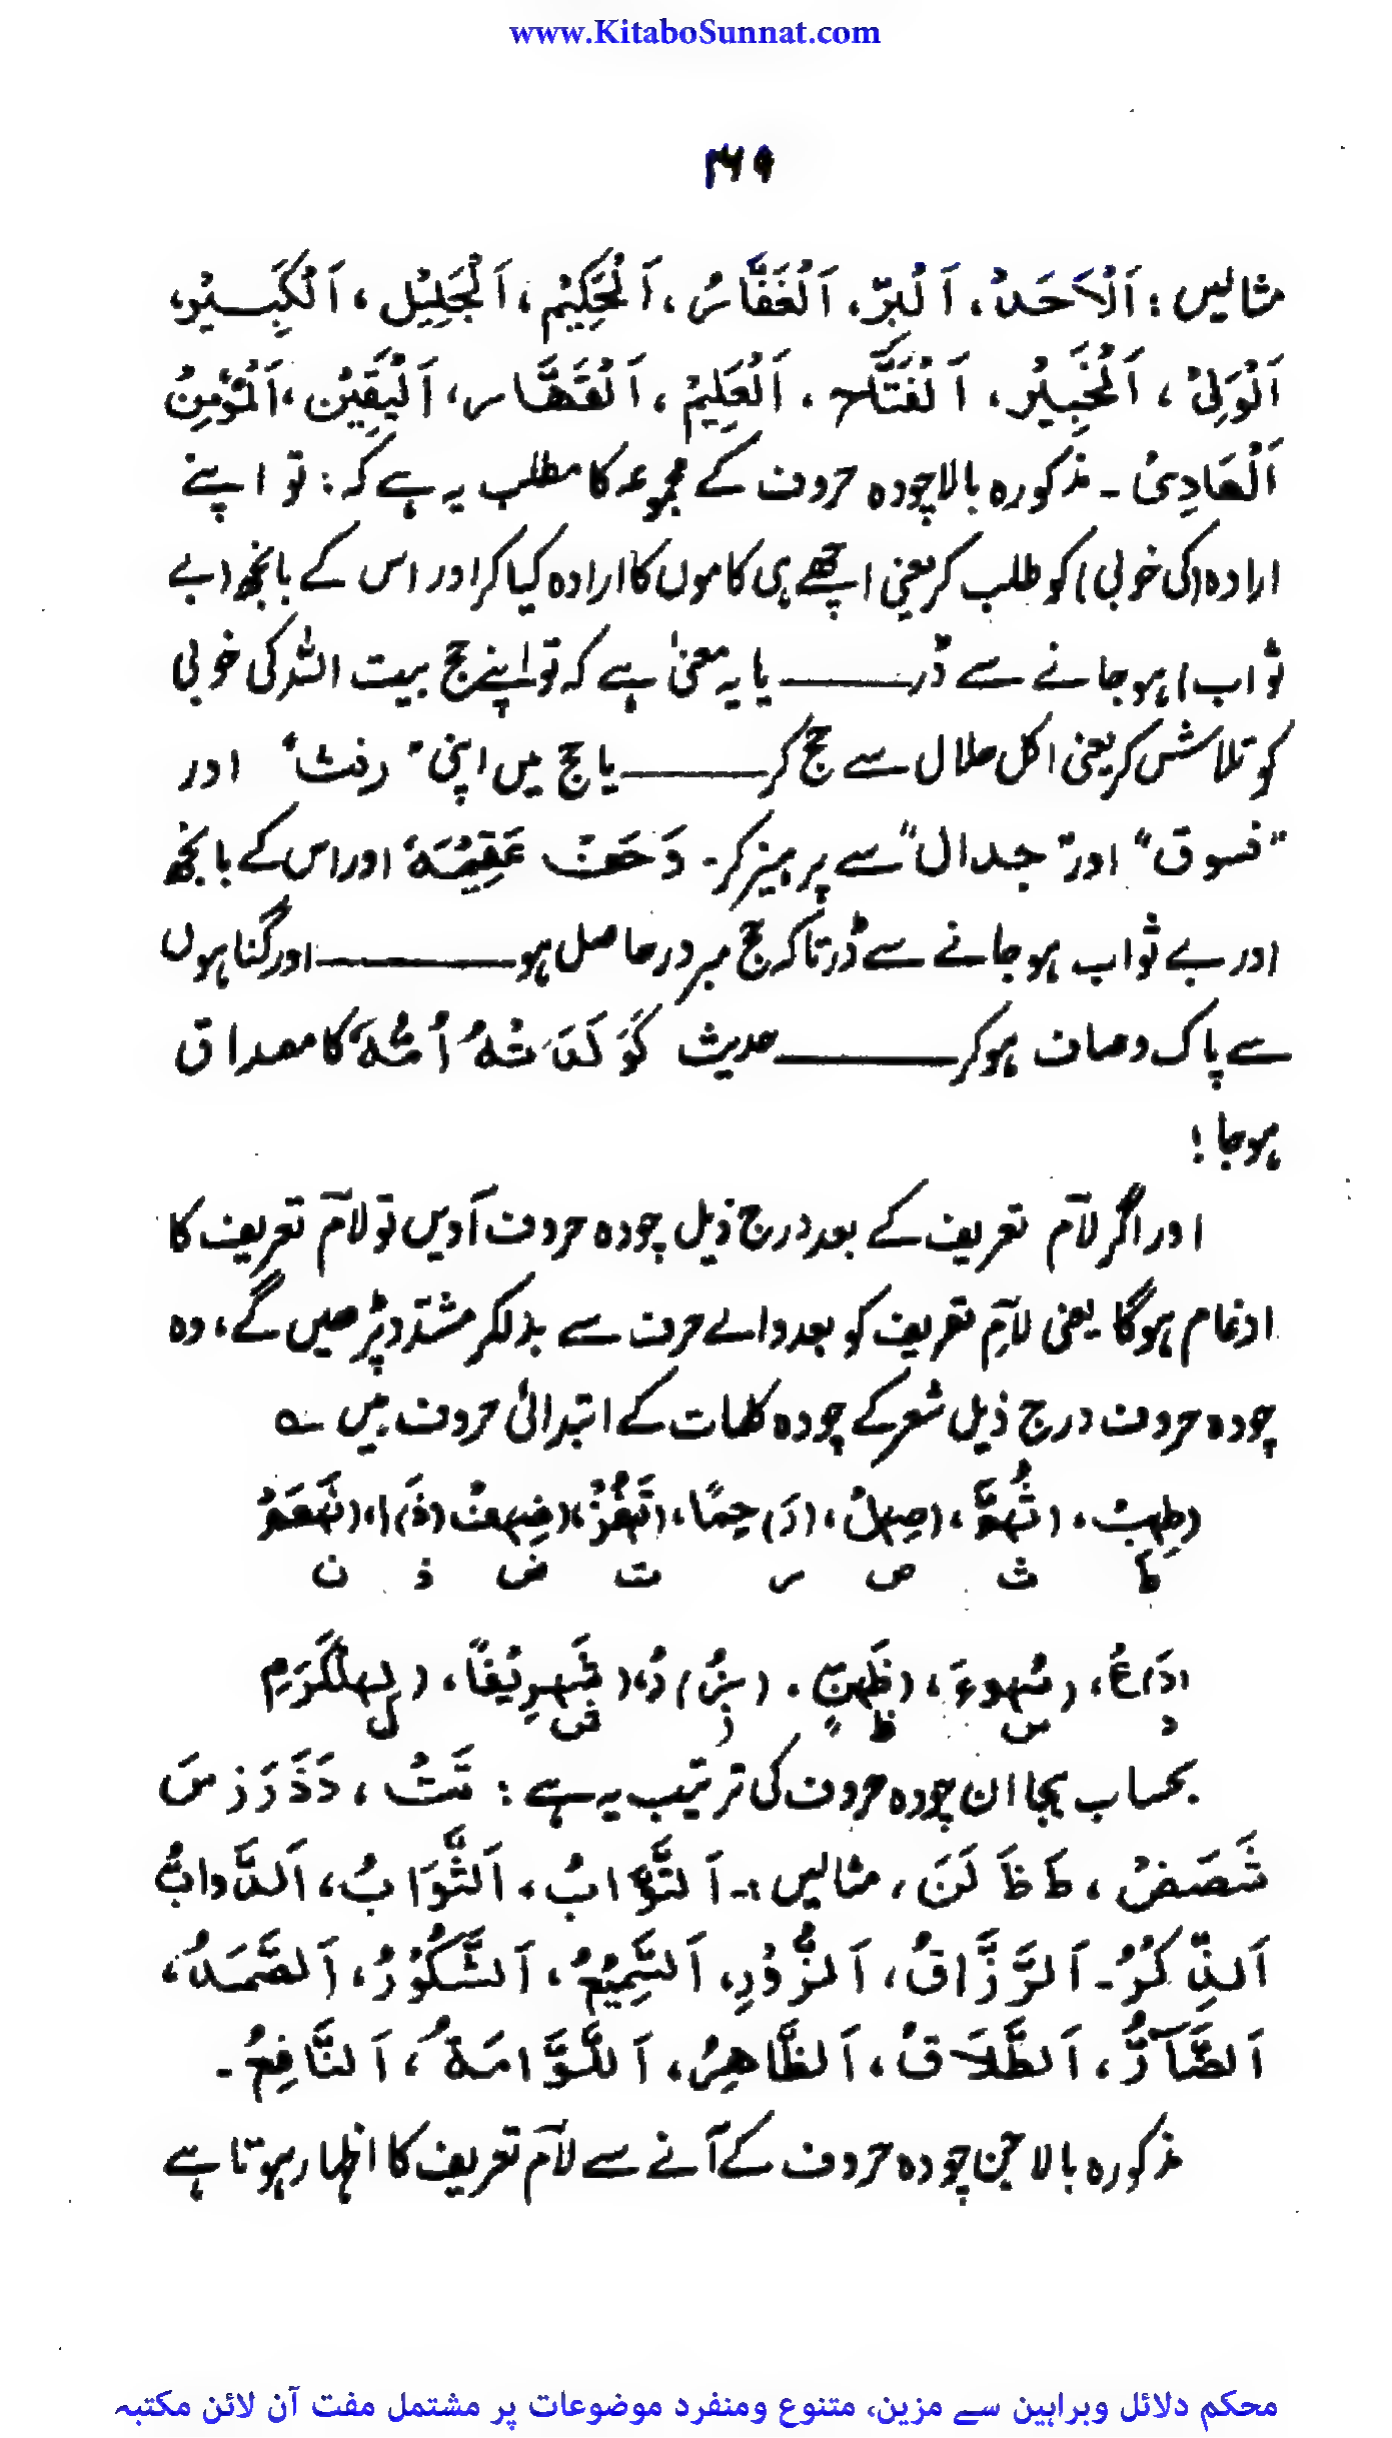 www.KitaboSunnat.com
۲۶۹
مثالیں : اَلْاَحَدُ، اَلْبَرُّ، اَلْغَفَّارُ، اَلْحَکِیْمُ، اَلْجَلِیْلُ، اَلْکَبِیْرُ،
اَلْوَلِیُّ ، اَلْخَبِیْرُ، اَلْفَتَّاحُ ، اَلْعَلِیْمُ ، اَلْقَهَّارُ، اَلْیَقِیْنُ ،اَلْمُؤْمِنُ
اَلْهَادِیْ ۔ مذکورہ بالا چودہ حروف کے مجموعہ کا مطلب یہ ہے کہ : تو اپنے
ارادہ (کی خوبی) کو طلب کر یعنی اچھے ہی کاموں کا ارادہ کیا کر اور اس کے بانجھ (بے
ثواب) ہوجانے سے ڈر ــــــــ یا یہ معنیٰ ہے کہ تو اپنے حج بیت اللہ کی خوبی
کو تلاش کر یعنی اکل حلال سے حج کر ــــــــ یا حج میں اپنی "رفث" اور
"فسوق" اور "جدال" سے پرہیز کر۔ وَخَفْ عَقِیْمَهٗ اور اس کے بانجھ
اور بے ثواب ہوجانے سے ڈر تاکہ حج مبرور حاصل ہو ــــــــ اور گناہوں
سے پاک وصاف ہوکر ــــــــ حدیث کَوَلَدَتْهُ اُمُّهٗ کا مصداق
ہوجا !
اور اگر لام تعریف کے بعد درج ذیل چودہ حروف آویں تو لام تعریف کا
ادغام ہوگا یعنی لام تعریف کو بعد والے حرف سے بدلکر مشدّد پڑھیں گے ، وہ
چودہ حروف درج ذیل شعر کے چودہ کلمات کے ابتدائی حروف ہیں ؎
(طِ)بْ، (ثُ)مَّ، (صِ)لْ، (رَ)حِمًا، (تَ)فُزْ، (ضِ)فْ، (ذَ)ا، (نِ)عَمْ
ط ث ص ر ت ض ذ ن
(دَ)عْ، (سُ)وْءَ، (ظَ)نٍّ، (زُ)رْ، (شَ)رِیْفًا، (لِ)لْکَرَمِ
د س ظ ز ش ل
بحساب ہجا ان چودہ حروف کی ترتیب یہ ہے : تَثْ ، دَذَرَزْسَ
شَصَضْ ، طَظَ لَنَ ، مثالیں :۔ اَلتَّوَّابُ، اَلثَّوَابُ، اَلدَّوابُّ
اَلذِّکْرُ۔ اَلرَّزَّاقُ، اَلزُّوْرِ، اَلسَّمِیْعُ، اَلشَّکُوْرُ، اَلصَّمَدُ،
اَلضَّآرُّ، اَلطَّلَاقُ، اَلظَّاهِرُ، اَللَّوَّامَةُ، اَلنَّافِعُ ۔
مذکورہ بالا جن چودہ حروف کے آنے سے لام تعریف کا اظہار ہوتا ہے
محکم دلائل وبراہین سے مزین، متنوع ومنفرد موضوعات پر مشتمل مفت آن لائن مکتبہ